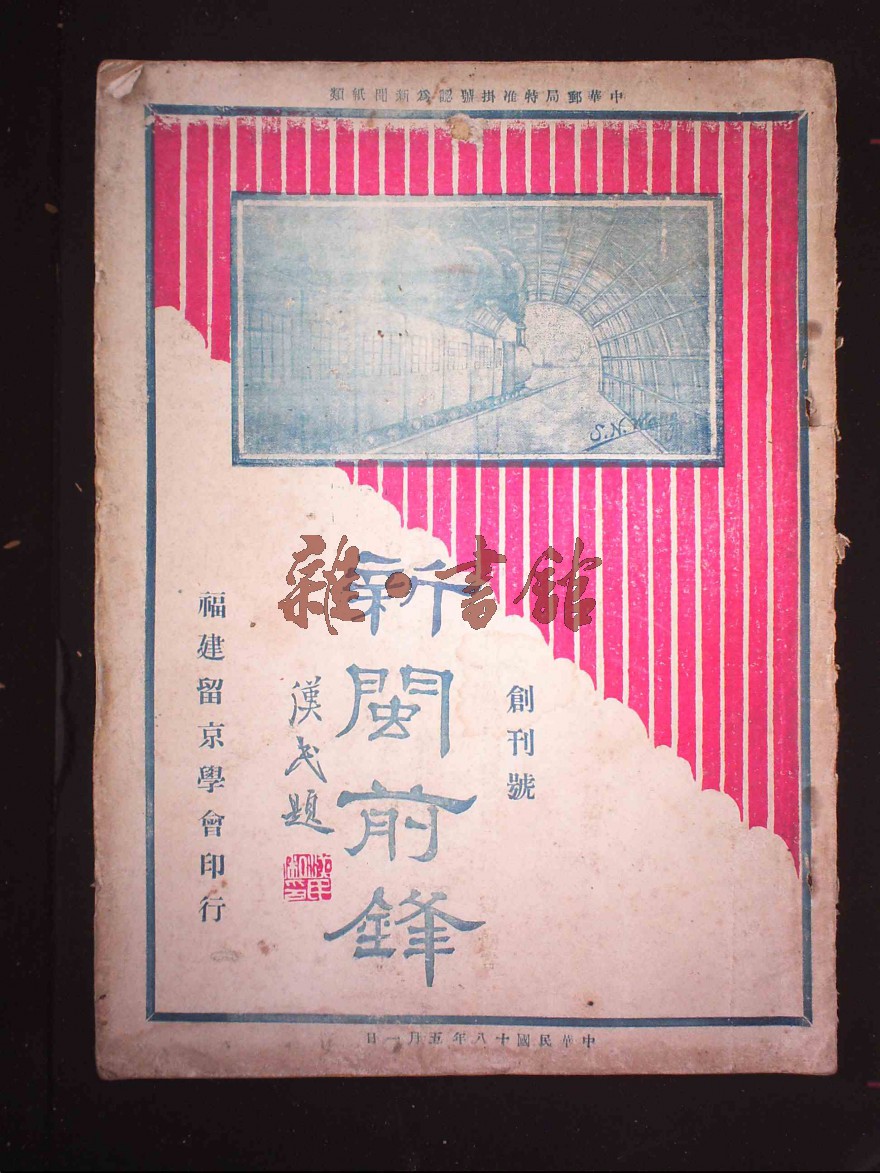 中華郵局特准掛號認爲新聞紙類
S.N.
雜·書館
創刊號
新閩前鋒
漢民題
福建留京學會印行
中華民國十八年五月一日